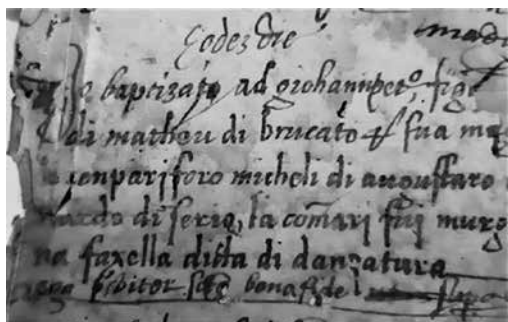 Eodez die
baptizato ad giohannipet.o figi
di matheu di brucato & sua
conpari foro micheli di augustaro
nardo di serio, la comari fuj murg
na faxella dicta di danzatura
prbitor bonafide